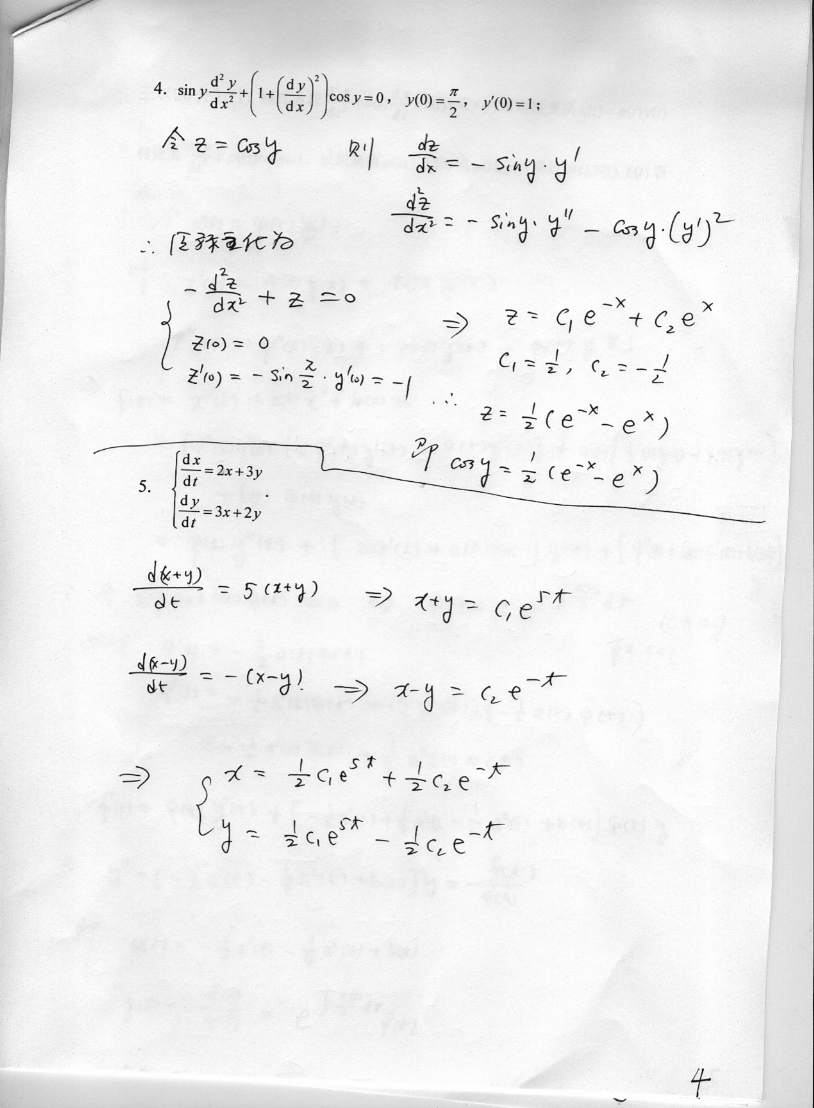 4. sin y d²y/dx² + (1+(dy/dx)²) cos y = 0, y(0) = π/2, y′(0) = 1;
令 z = cos y 则 dz/dx = - sin y · y′
d²z/dx² = - sin y · y″ - cos y · (y′)²
∴ 原方程化为
{ - d²z/dx² + z = 0
z(0) = 0
z′(0) = - sin π/2 · y′(0) = -1
⇒ z = C₁ e^{-x} + C₂ e^{x}
C₁ = 1/2, C₂ = - 1/2
∴ z = 1/2 (e^{-x} - e^{x})
即 cos y = 1/2 (e^{-x} - e^{x})
5. { dx/dt = 2x+3y
dy/dt = 3x+2y .
d(x+y)/dt = 5 (x+y) ⇒ x+y = C₁ e^{5t}
d(x-y)/dt = - (x-y) ⇒ x-y = C₂ e^{-t}
⇒ { x = 1/2 C₁ e^{5t} + 1/2 C₂ e^{-t}
y = 1/2 C₁ e^{5t} - 1/2 C₂ e^{-t}
4